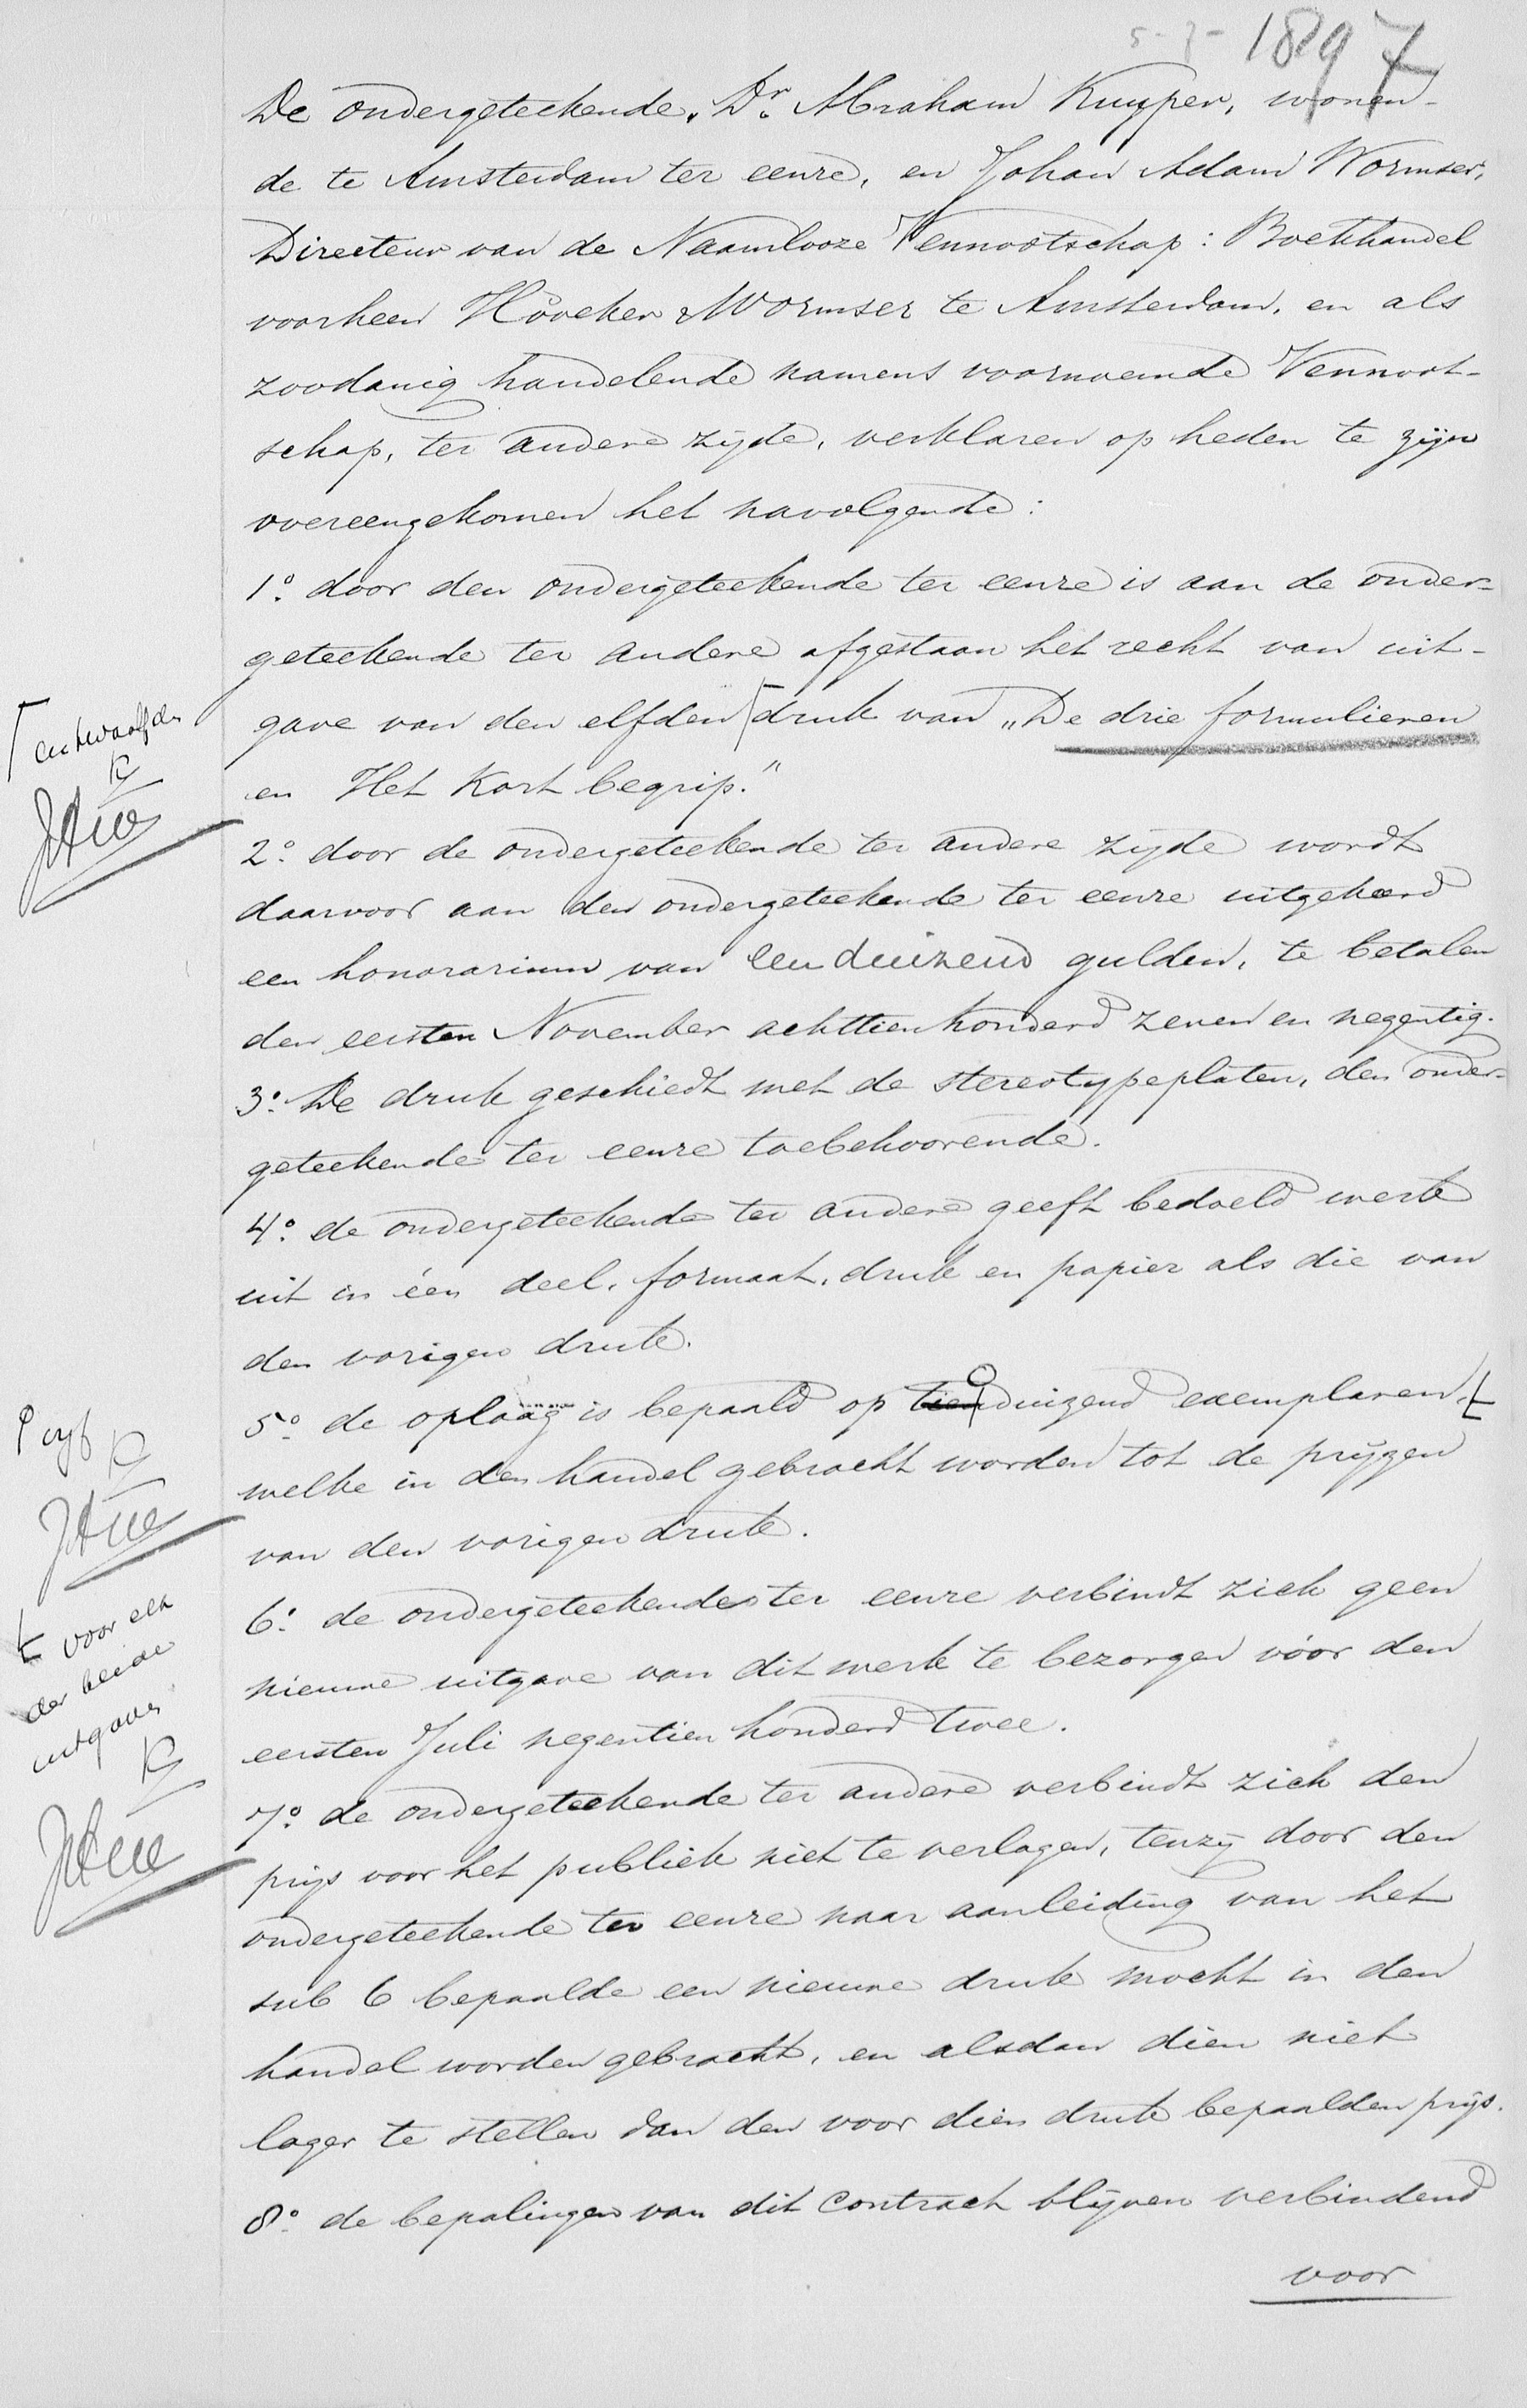 5-7-1897
De ondergeteekende, Dr. Abraham Kuyper, wonen-
de te Amsterdam ter eenre, en Johan Adam Wormser,
Directeur van de Naamlooze Vennootschap: Boekhandel
voorheen Höveker & Wormser te Amsterdam, en als
zoodanig handelende namens voornoemde Vennoot-
schap, ter andere zijde, verklaren op heden te zijn
overeengekomen het navolgende:
1o. door den ondergeteekende ter eenre is aan de onder-
geteekende ter andere afgestaan het recht van uit-
gave van den elfden ⌈ druk van „De drie formulieren
⌈ en twaalfden
K
JAW
en Het Kort begrip."
2o. door de ondergeteekende ter andere zijde wordt
daarvoor aan den ondergeteekende ter eenre uitgekeerd
een honorarium van een duizend gulden, te betalen
den eersten November achttienhonderd zeven en negentig.
3o. De druk geschiedt met de stereotypeplaten, den onder-
geteekende ter eenre toebehoorende.
4o. de ondergeteekende ter andere geeft bedoeld werk
uit in één deel, formaat, druk en papier als die van
den vorigen druk.
5o. de oplaag is bepaald op tienduizend exemplaren,
vijf
K
JAW
welke in den handel gebracht worden tot de prijzen
van den vorigen druk.
voor elk
der beide
uitgaven
K
JAW
6o. de ondergeteekende ter eenre verbindt zich geen
nieuwe uitgave van dit werk te bezorgen vóór den
eersten Juli negentien honderd twee.
7o. de ondergeteekende ter andere verbindt zich den
prijs voor het publiek niet te verlagen, tenzij door den
ondergeteekende ter eenre naar aanleiding van het
sub 6 bepaalde een nieuwe druk mocht in den
handel worden gebracht, en alsdan dien niet
lager te stellen dan den voor dien druk bepaalden prijs.
8o. de bepalingen van dit contract blijven verbindend
voor